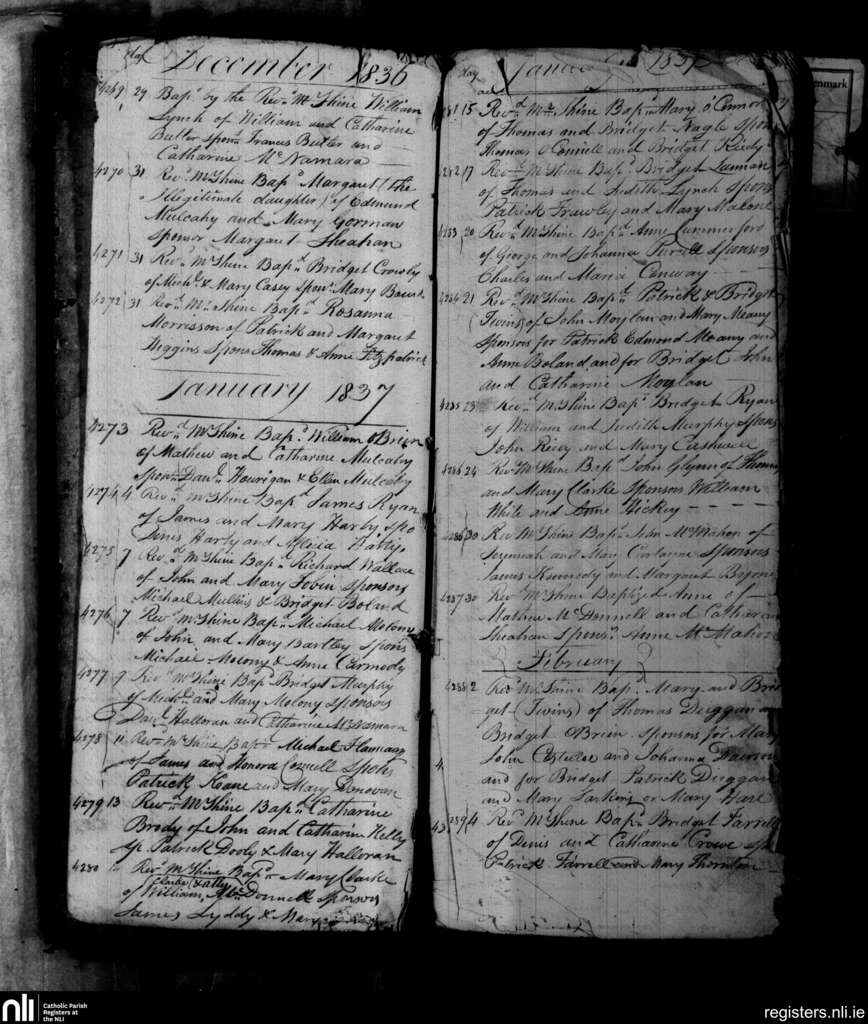 day December 1836
4269 29 Bapd. by the Revd. Mr Shine William
Lynch of William and Catharine
Butler Spons Frances Butler and
Catharine McNamara
4270 31 Revd. Mr Shine Bapd. Margaret (the
Illegitimate daughter) of Edmund
Mulcahy and Mary Gorman
Sponsor Margaret Sheahan
4271 31 Revd. Mr Shine Bapd. Bridget Crowly
of Michl. & Mary Casey Spons. Mary
4272 31 Revd. Mr Shine Bapd. Rosanna
Morrisson of Patrick and Margaret
Higgins Spons Thomas & Anne Fitzpatrick
January 1837
4273 3 Revd. Mr Shine Bapd. William O Brien
of Mathew and Catharine Mulcahy
Spons Danl. Hourigan & Ellen Mulcahy
4274 4 Revd. Mr Shine Bapd. James Ryan
of James and Mary Harty Spo
Denis Harty and Allicia Hartys
4275 7 Revd. Mr Shine Bapd. Richard Wallace
of John and Mary Tobin Sponsors
Michael Mullins & Bridget Boland
4276 7 Revd. Mr Shine Bapd. Michael Molony
of John and Mary Bartley Spons
Michael Molony & Anne Carmody
4277 9 Revd. Mr Shine Bapd. Bridget Murphy
of Michl. and Mary Molony Sponsors
Danl. Halloran and Catharine McNamara
4278 11 Revd. Mr Shine Bapd. Michael
of James and Honora Spons
Patrick Keane and Mary Donovan
4279 13 Revd. Mr Shine Bapd. Catharine
Brody of John and Catharine Kelly
Sp. Patrick Dooly & Mary Halloran
4280 Revd. Mr Shine Bapd. Mary Clarke
of William, McDonnell Sponsors
James Lyddy & Mary
day January 1837
15 Revd. Mr Shine Bapd. Mary O'Connor
of Thomas and Bridget Nagle Spons
Thomas O Connell and Bridget Reidy
17 Revd. Mr Shine Bapd. Bridget
of Thomas and Judith Lynch Spons
Patrick Frawley and Mary Malone
4283 20 Revd. Mr Shine Bapd. Anne
of George and Johanna Sponsors
Charles and Maria Conway
4284 21 Revd. Mr Shine Bapd. Patrick & Bridget
(Twins) of John Moylan and Mary Meany
Sponsors for Patrick Edmond Meany and
Anne Boland, and for Bridget John
and Catharine Moylan
4285 23 Revd. Mr Shine Bapd. Bridget Ryan
of William and Judith Murphy Spons
John and Mary
4286 24 Revd. Mr Shine Bapd. John Glynn of Thomas
and Mary Clarke Sponsors William
White and Anne Hickey
4286 30 Rev Mr Shine Bapd. John McMahon of
Jeremiah and Mary Sponsors
James Kennedy and Margaret
4287 30 Rev Mr Shine Baptized Anne of
McDonnell and Catharine
Sheahan Spons. Anne McMahon
February
4288 2 Revd. Mr Shine Bapd. Mary and Brid
get (Twins) of Thomas Duggan and
Bridget O Brien Sponsors for Mary
John Costelloe and Johanna
and for Bridget Patrick Duggan
and Mary Larking or Mary Hare
4289 4 Revd. Mr Shine Bapd. Bridget Farrell
of Denis and Catharine Crowe Sp
Patrick Farrell and Mary Thornton
nli Catholic Parish
Registers at
the NLI
registers.nli.ie